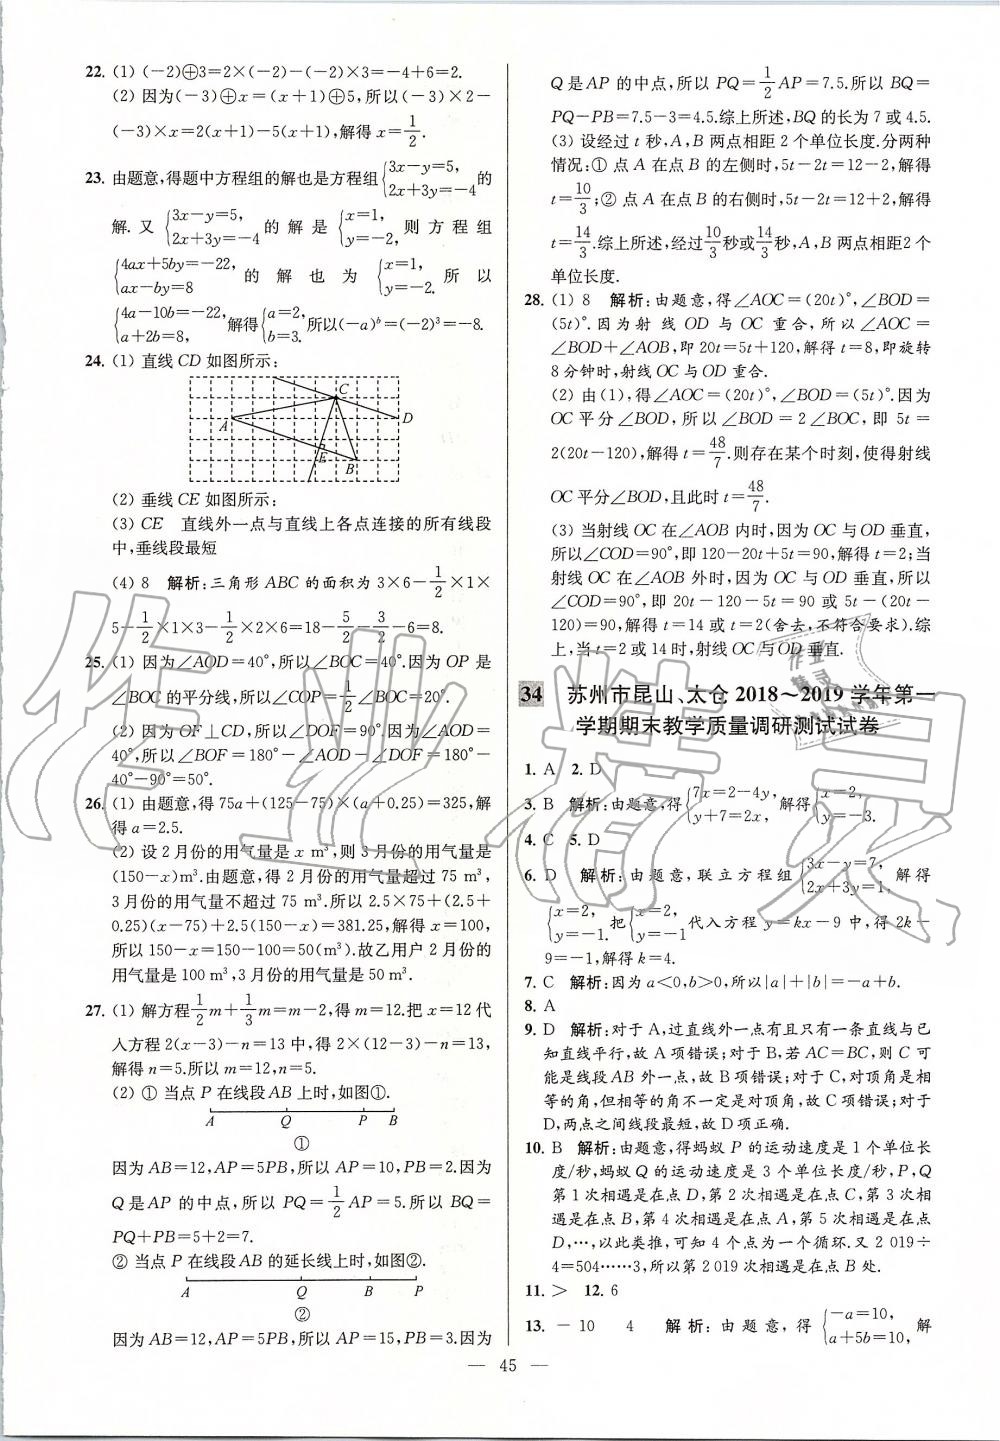 22. (1) (-2)⊕3=2×(-2)-(-2)×3=-4+6=2.
(2) 因为(-3)⊕x=(x+1)⊕5,所以(-3)×2-
(-3)×x=2(x+1)-5(x+1),解得 x=1/2.
23. 由题意,得题中方程组的解也是方程组{3x-y=5, 2x+3y=-4 的
解. 又 {3x-y=5, 2x+3y=-4 的 解 是 {x=1, y=-2, 则 方 程 组
{4ax+5by=-22, ax-by=8 的 解 也 为 {x=1, y=-2. 所 以
{4a-10b=-22, a+2b=8, 解得{a=2, b=3. 所以(-a)^b=(-2)^3=-8.
24. (1) 直线 CD 如图所示:
C
A
D
E
B
(2) 垂线 CE 如图所示:
(3) CE 直线外一点与直线上各点连接的所有线段
中,垂线段最短
(4) 8 解析:三角形 ABC 的面积为 3×6-1/2×1×
5-1/2×1×3-1/2×2×6=18-5/2-3/2-6=8.
25. (1) 因为∠AOD=40°,所以∠BOC=40°.因为 OP 是
∠BOC 的平分线,所以∠COP=1/2∠BOC=20°.
(2) 因为 OF⊥CD,所以∠DOF=90°.因为∠AOD=
40°,所以∠BOF=180°-∠AOD-∠DOF=180°-
40°-90°=50°.
26. (1) 由题意,得 75a+(125-75)×(a+0.25)=325,解
得 a=2.5.
(2) 设 2 月份的用气量是 x m³,则 3 月份的用气量是
(150-x)m³.由题意,得 2 月份的用气量超过 75 m³,
3 月份的用气量不超过 75 m³.所以 2.5×75+(2.5+
0.25)(x-75)+2.5(150-x)=381.25,解得 x=100,
所以 150-x=150-100=50(m³).故乙用户 2 月份的
用气量是 100 m³,3 月份的用气量是 50 m³.
27. (1) 解方程1/2m+1/3m=m-2,得 m=12.把 x=12 代
入方程 2(x-3)-n=13 中,得 2×(12-3)-n=13,
解得 n=5.所以 m=12,n=5.
(2) ① 当点 P 在线段 AB 上时,如图①.
A Q P B
①
因为 AB=12,AP=5PB,所以 AP=10,PB=2.因为
Q是AP 的中点,所以 PQ=1/2AP=5.所以 BQ=
PQ+PB=5+2=7.
② 当点 P 在线段 AB 的延长线上时,如图②.
A Q B P
②
因为 AB=12,AP=5PB,所以 AP=15,PB=3.因为
Q 是 AP 的中点,所以 PQ=1/2AP=7.5.所以 BQ=
PQ-PB=7.5-3=4.5.综上所述,BQ的长为 7 或 4.5.
(3) 设经过 t 秒,A,B 两点相距 2 个单位长度.分两种
情况:① 点 A 在点 B 的左侧时,5t-2t=12-2,解得
t=10/3;② 点 A 在点 B 的右侧时,5t-2t=12+2,解得
t=14/3.综上所述,经过10/3秒或14/3秒时,A,B 两点相距2 个
单位长度.
28. (1) 8 解析:由题意,得∠AOC=(20t)°,∠BOD=
(5t)°.因为射线 OD 与 OC 重合,所以∠AOC=
∠BOD+∠AOB,即 20t=5t+120,解得 t=8,即旋转
8 分钟时,射线 OC 与 OD 重合.
(2) 由(1),得∠AOC=(20t)°,∠BOD=(5t)°.因为
OC 平分∠BOD,所以∠BOD=2∠BOC,即 5t=
2(20t-120),解得 t=48/7.则存在某个时刻,使得射线
OC 平分∠BOD,且此时 t=48/7.
(3) 当射线 OC 在∠AOB 内时,因为 OC 与 OD 垂直,
所以∠COD=90°,即 120-20t+5t=90,解得 t=2;当
射线 OC 在∠AOB 外时,因为 OC 与 OD 垂直,所以
∠COD=90°,即 20t-120-5t=90 或 5t-(20t-
120)=90,解得 t=14 或 t=2(舍去,不符合要求).综
上,当 t=2 或 14 时,射线 OC 与 OD 垂直.
34 苏州市昆山、太仓 2018~2019 学年第一
学期期末教学质量调研测试试卷
1. A 2. D
3. B 解析:由题意,得{7x=2-4y, y+7=2x, 解得{x=2, y=-3.
4. C 5. D
6. D 解析:由题意,联立方程组{3x-y=7, 2x+3y=1, 解得
{x=2, y=-1. 把{x=2, y=-1 代入方程 y=kx-9 中,得 2k-
9=-1,解得 k=4.
7. C 解析:因为 a<0,b>0,所以|a|+|b|=-a+b.
8. A
9. D 解析:对于 A,过直线外一点有且只有一条直线与已
知直线平行,故 A 项错误;对于 B,若 AC=BC,则 C 可
能是线段 AB 外一点,故 B 项错误;对于 C,对顶角是相
等的角,但相等的角不一定是对顶角,故 C 项错误;对于
D,两点之间线段最短,故 D 项正确.
10. B 解析:由题意,得蚂蚁 P 的运动速度是 1 个单位长
度/秒,蚂蚁 Q 的运动速度是 3 个单位长度/秒,P,Q
第 1 次相遇是在点 D,第 2 次相遇是在点 C,第 3 次相
遇是在点 B,第 4 次相遇是在点 A,第 5 次相遇是在点
D,…,以此类推,可知 4 个点为一个循环.又 2 019÷
4=504……3,所以第 2 019 次相遇是在点 B 处.
11. > 12. 6
13. -10 4 解析:由题意,得{-a=10, a+5b=10, 解
— 45 —
作业精灵